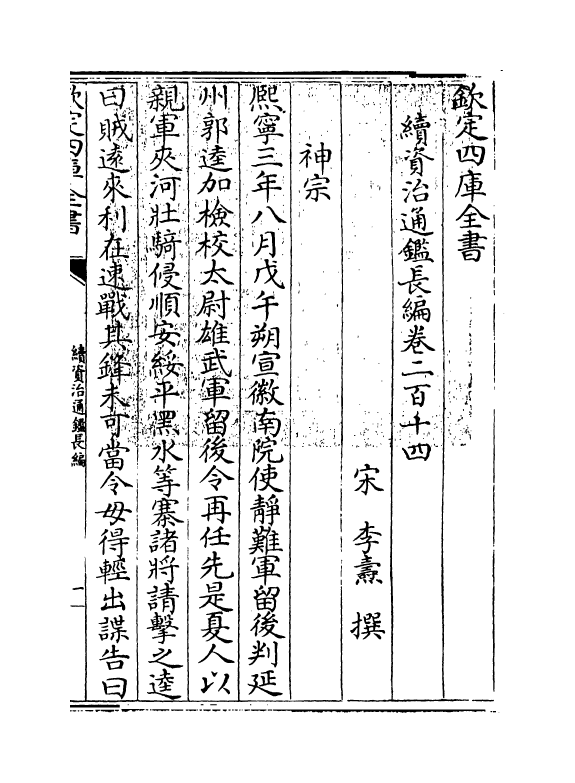 欽定四庫全書
續資治通鑑長編卷二百十四
宋 李燾 撰
神宗
熙寧三年八月戊午朔宣徽南院使靜難軍留後判延
州郭逵加檢校太尉雄武軍留後令再任先是夏人以
親軍夾河壯騎侵順安綏平黑水等寨諸將請擊之逵
曰賊逺來利在速戰其鋒未可當令毋得輕出諜告曰
欽定四庫全書
續資治通鑑長編